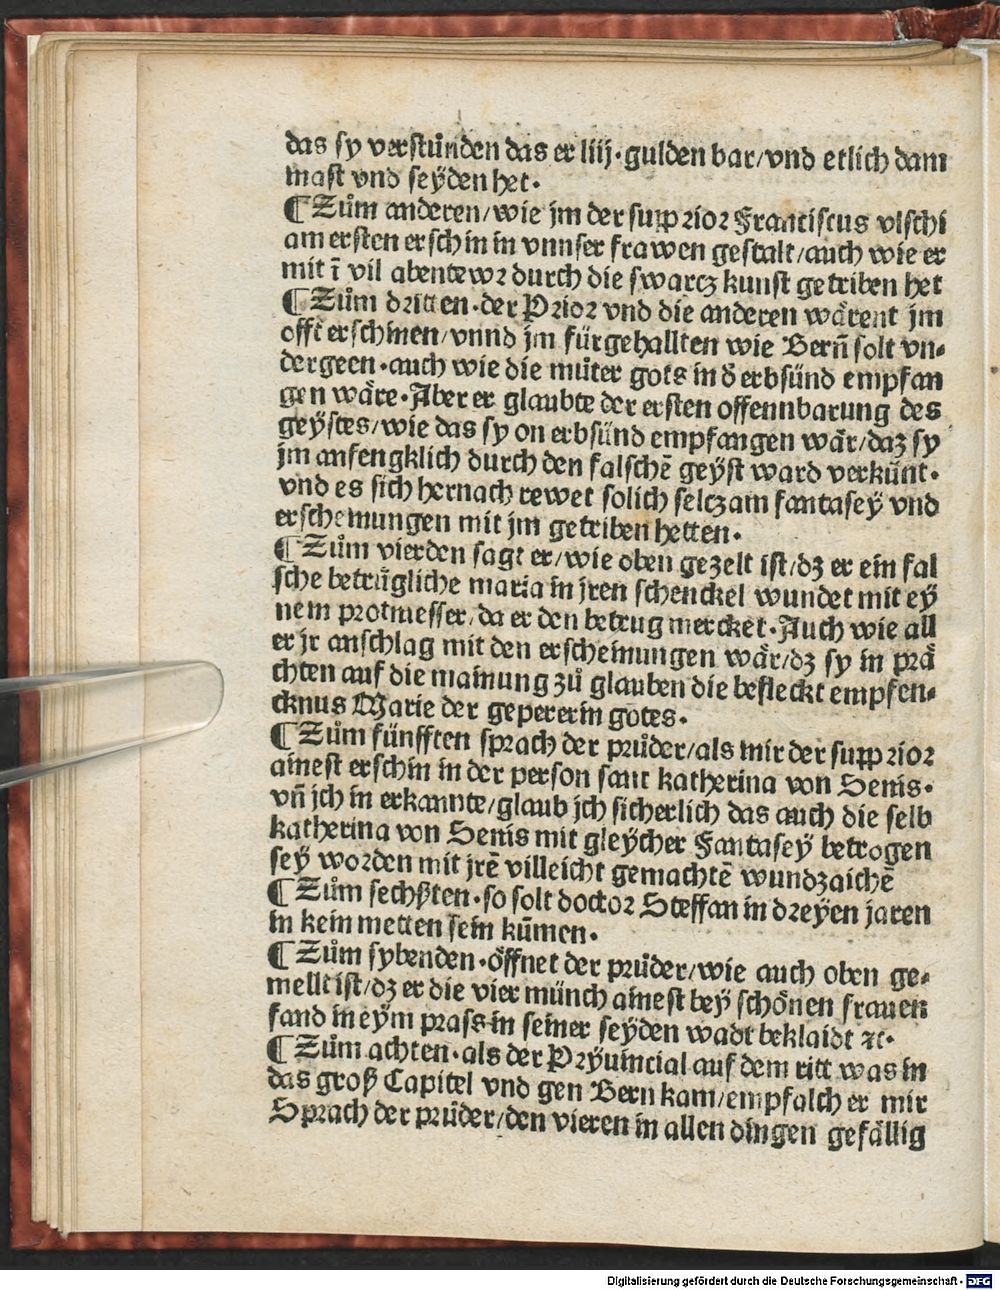 das sy verstůnden das er liij·gulden bar/vnd etlich dam
mast vnd seÿden het·
¶ Zům anderen/wie jm der supprior Franciscus vlschi
am ersten erschin in vnnser frawen gestalt/auch wie er
mit ī vil abentewr durch die swarcz kunst getriben het
¶ Zům dritten·der Prior vnd die anderen wärent jm
offt erschinen/vnnd jm fürgehallten wie Bern̄ solt vn-
dergeen·auch wie die můter gots in d̄ erbsünd empfan
gen wäre·Aber er glaubte der ersten offennbarung des
geÿstes/wie das sy on erbsünd empfangen wär/daz sy
jm anfengklich durch den falschē geÿst ward verkünt·
vnd es sich hernach rewet solich selczam fantaseÿ vnd
erscheinungen mit jm getriben hetten·
¶ Zům vierden sagt er/wie oben gezelt ist/dz er ein fal
sche betrügliche maria in jren schenckel wundet mit eÿ
nem protmesser/da er den betrug mercket·Auch wie all
er jr anschlag mit den erscheinungen wär/dz sy in prä
chten auf die mainung zů glauben die befleckt empfen-
cknus Marie der gepererin gotes·
¶ Zům fünfften sprach der průder/als mir der supprior
ainest erschin in der person sant katherina von Senis·
vn̄ jch in erkannte/glaub jch sicherlich das auch die selb
katherina von Senis mit gleÿcher Fantaseÿ betrogen
seÿ worden mit jrē villeicht gemachtē wundzaichē
¶ Zům sechßten·so solt doctor Steffan in dreÿen jaren
in kein metten sein kūmen·
¶ Zům sybenden·öffnet der průder/wie auch oben ge-
mellt ist/dz er die vier münch ainest beÿ schönen frauen
fand in eÿm prass·in seiner seÿden wadt beklaidt ꝛc·
¶ Zům achten·als der Prÿuincial auf dem ritt was in
das groß Capitel vnd gen Bern kam/empfalch er mir
Sprach der průder/den vieren in allen dingen gefällig
Digitalisierung gefördert durch die Deutsche Forschungsgemeinschaft - DFG